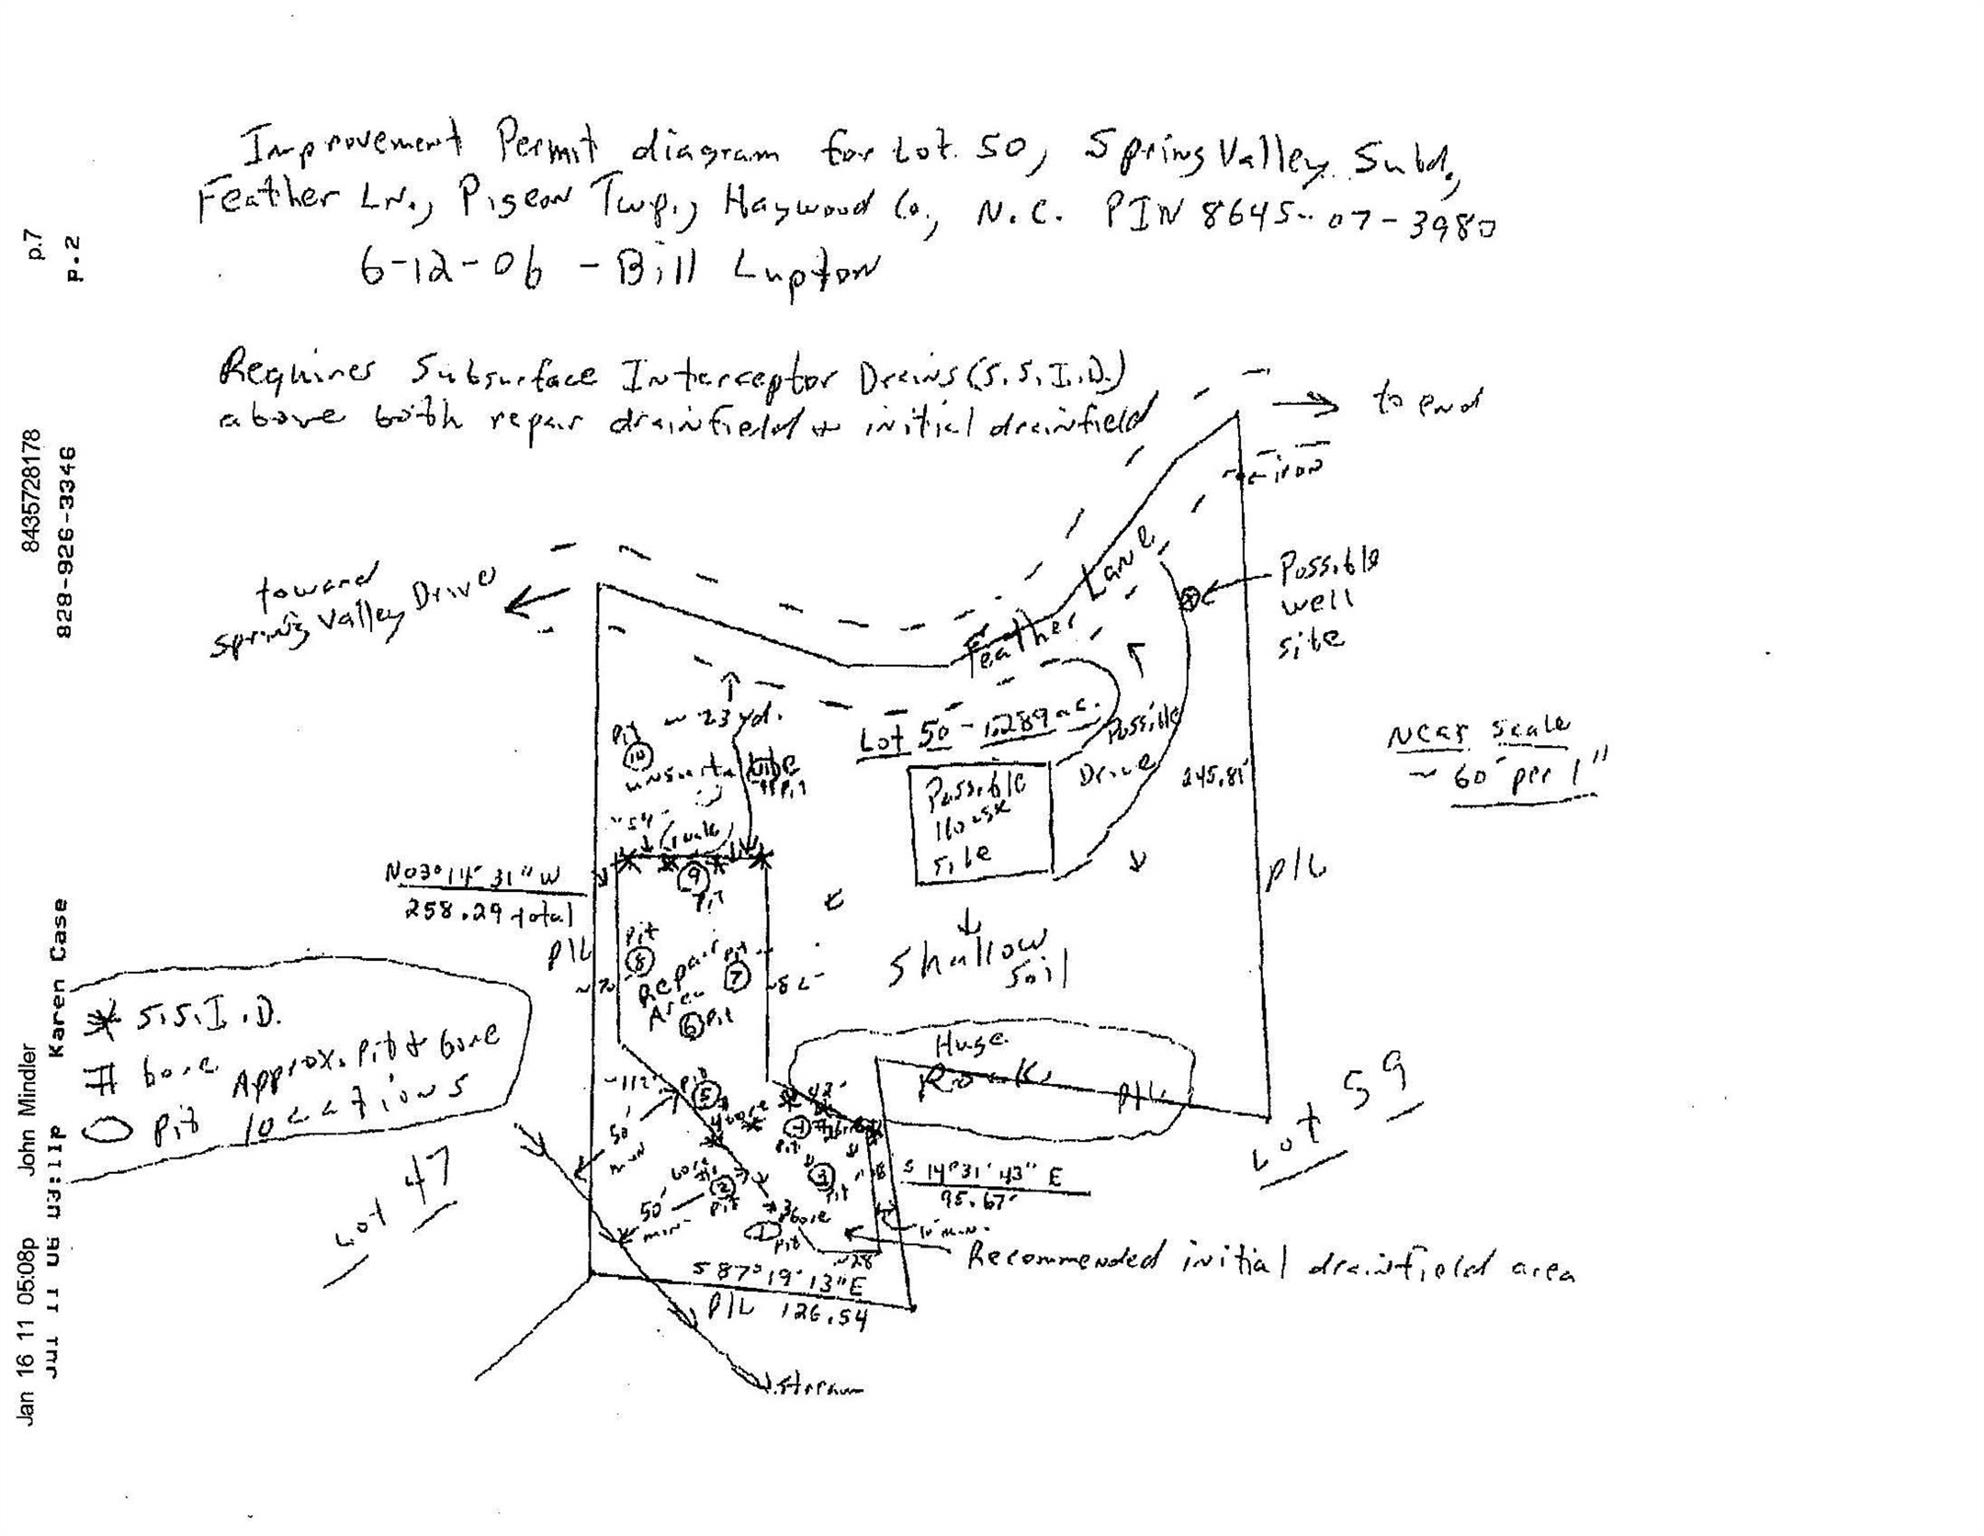 Improvement Permit diagram for Lot 50, Spring Valley Subd.,
Feather LN., Pigeon Twp., Haywood Co., N.C. PIN 8645-07-3980
6-12-06 - Bill Lupton
Requires Subsurface Interceptor Drains (S.S.I.D.)
above both repair drainfield & initial drainfield
p.7
p.2
8435728178
828-926-3346
John Mindler
Karen Case
Jan 16 11 05:08p
Jul 11 06 03:11p
to end
iron
toward
Spring Valley Drive
Feather Lane
Possible
well
site
~ 23 yd.
Pit
10
unsuitable
Pit
Lot 50 - 1.289 ac.
Possible
Drive
245.81'
Near scale
~ 60' per 1"
Possible
House
site
9
Pit
N03°14'31"W
258.29 total
P/L
P/L
Pit
8
Repair
Area
Pit
7
6 Pit
Shallow
Soil
* S.S.I.D.
# bore
Approx. Pit & bore
locations
Pit
Huge
Rock
P/L
Lot 59
~112'
Pit
5
50'
min
42'
4
Pit
3
Pit
S 14°31'43" E
95.67'
10' min.
Lot 47
50'
min
bore
2
Pit
3 bore
1
Pit
~28'
Recommended initial drainfield area
S 87°19'13"E
P/L 126.54
stream